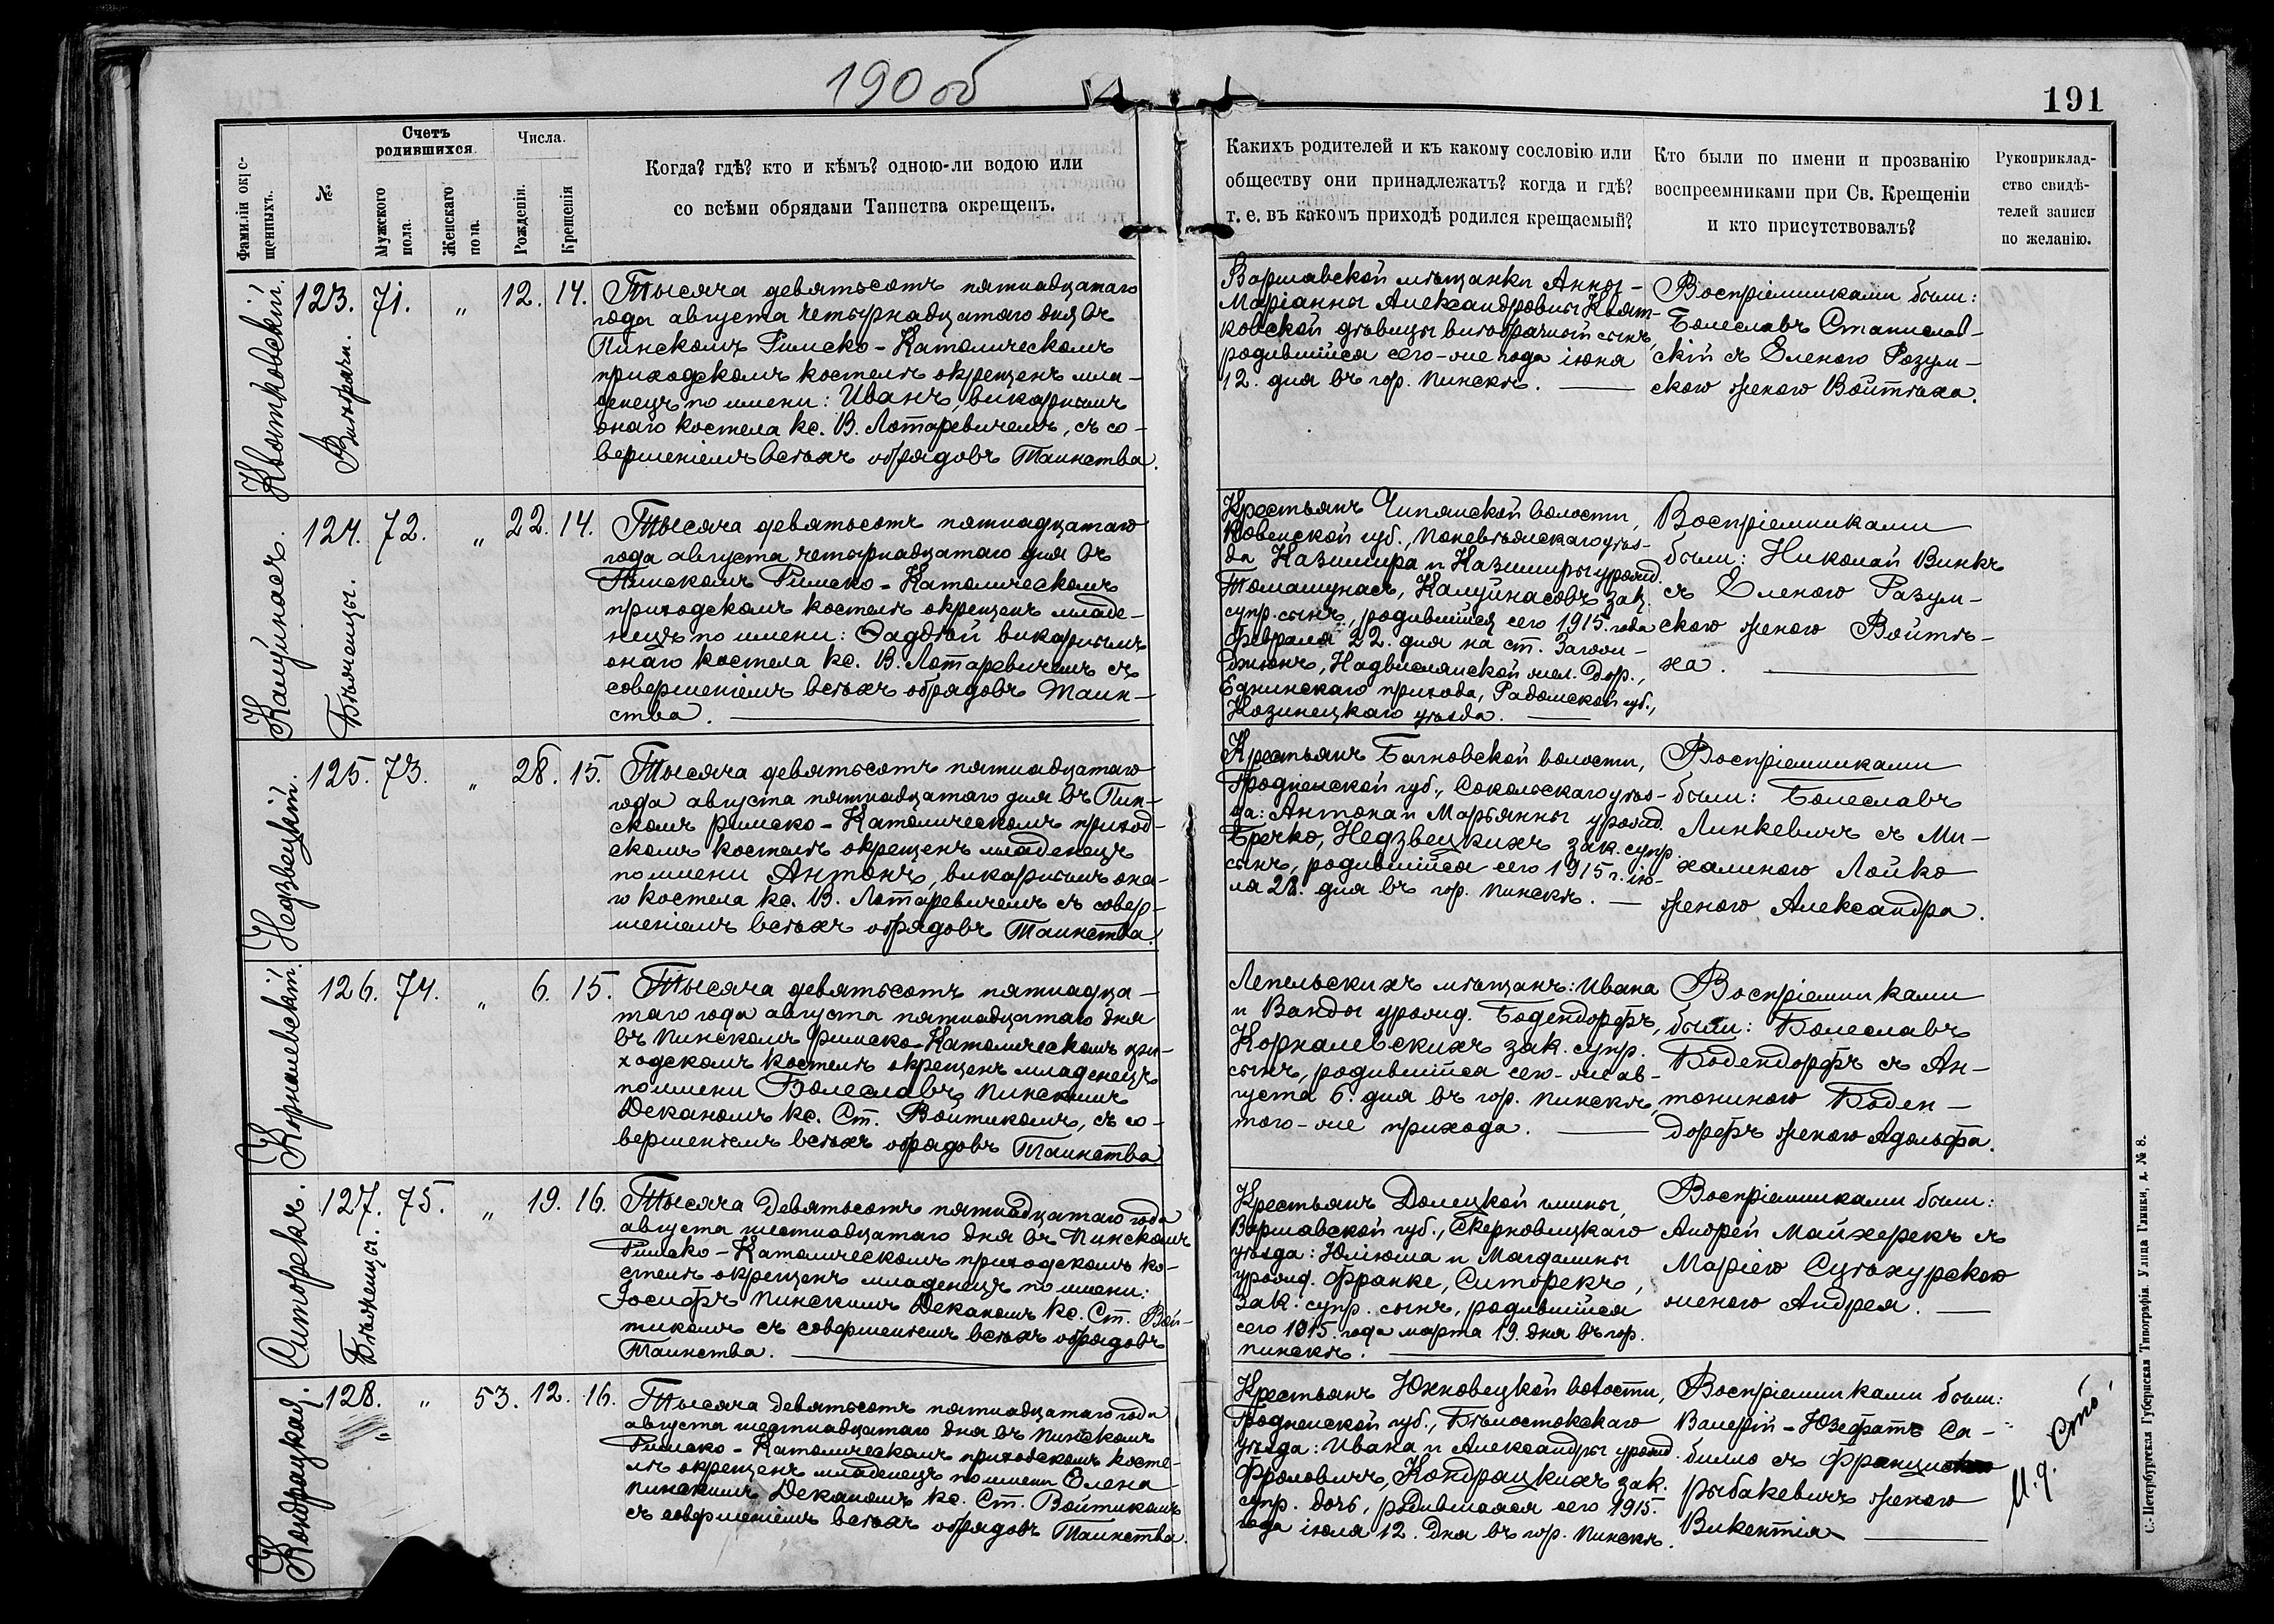 190 об
191
Фамиліи окре-
щенныхъ.
№
Счетъ
родившихся.
Мужского
пола.
Женскаго
пола.
Числа.
Рожденія.
Крещенія
Когда? гдѣ? кто и кѣмъ? одною-ли водою или
со всѣми обрядами Таинства окрещенъ.
Какихъ родителей и къ какому сословію или
обществу они принадлежатъ? когда и гдѣ?
т. е. въ какомъ приходѣ родился крещаемый?
Кто были по имени и прозванію
воспреемниками при Св. Крещеніи
и кто присутствовалъ?
Рукоприклад-
ство свидѣ-
телей записи
по желанію.
Квятковскій.
123.
Внѣбрачн.
71.
„
12.
14.
Тысяча девятьсотъ пятнадцатаго
года августа четырнадцатаго дня въ
Пинскомъ Римско-Католическомъ
приходскомъ костелѣ окрещенъ мла-
денецъ по имени: Иванъ, викарнымъ
онаго костела кс. В. Лотаревичемъ, съ со-
вершеніемъ всѣхъ обрядовъ Таинства.
Варшавской мѣщанки Анны-
Маріанны Александровны Квят-
ковской дѣвицы внѣбрачный сынъ,
родившійся сего-же года іюня
12. дня въ гор. Пинскѣ.
Воспріемниками были:
Болеславъ Станислав-
скій съ Еленою Розум-
скою женою Войтѣха.
Калуйнасъ.
124.
Бѣженцы.
72.
„
22.
14.
Тысяча девятьсотъ пятнадцатаго
года августа четырнадцатаго дня въ
Пинскомъ Римско-Католическомъ
приходскомъ костелѣ окрещенъ младе-
нецъ по имени: Фаддѣй викарнымъ
онаго костела кс. В. Лотаревичемъ съ
совершеніемъ всѣхъ обрядовъ Таин-
ства.
Крестьянъ Чипянской волости,
Ковенской губ., Поневѣжскаго уѣз-
да Казимира и Казимиры урожд.
Томашунасъ, Калуйнасовъ зак.
супр. сынъ, родившійся сего 1915. года
Февраля 22. дня на ст.
Надвислянской жел. дор.,
прихода, Радомской губ.,
Козинецкаго уѣзда.
Воспріемниками
были: Николай Винкъ
съ Еленою Разум-
скою женою Войтѣ-
ха.
Недзвецкій.
125.
73.
„
28.
15.
Тысяча девятьсотъ пятнадцатаго
года августа пятнадцатаго дня въ Пин-
скомъ римско-Католическомъ приход-
скомъ костелѣ окрещенъ младенецъ
по имени Антонъ, викарнымъ она-
го костела кс. В. Лотаревичемъ съ совер-
шеніемъ всѣхъ обрядовъ Таинства.
Крестьянъ Бачковской волости,
Гродненской губ., Сокольскаго уѣз-
да: Антона и Марьянны урожд.
Бречко, Недзвецкихъ зак. супр.
сынъ, родившійся сего 1915 г. ію-
ля 28. дня въ гор. Пинскѣ.
Воспріемниками
были: Болеславъ
Линкевичъ съ Ми-
халиною Лойко
женою Александра.
Корналевскій.
126.
74.
„
6.
15.
Тысяча девятьсотъ пятнадца-
таго года августа пятнадцатаго дня
въ Пинскомъ римско-Католическомъ при-
ходскомъ костелѣ окрещенъ младенецъ
по имени Болеславъ Пинскимъ
Деканомъ кс. Ст. Войтикомъ, съ со-
вершеніемъ всѣхъ обрядовъ Таинства.
Лепельскихъ мѣщанъ: Ивана
и Ванды урожд. Бодендорфъ,
Корналевскихъ зак. супр.
сынъ, родившійся сего-же ав-
густа 6. дня въ гор. Пинскѣ,
того-же прихода.
Воспріемниками
были: Болеславъ
Бодендорфъ съ Ан-
тониною Боден-
дорфъ женою Адольфа.
Ситорекъ.
127.
Бѣженцы.
75.
„
19.
16.
Тысяча девятьсотъ пятнадцатаго года
августа шестнадцатаго дня въ Пинскомъ
Римско-Католическомъ приходскомъ ко-
стелѣ окрещенъ младенецъ по имени:
Іосифъ Пинскимъ Деканомъ кс. Ст. Вой-
тикомъ съ совершеніемъ всѣхъ обрядовъ
Таинства.
Крестьянъ Долецкой гмины,
Варшавской губ., Скерновицкаго
уѣзда: Юліюша и Магдалины
урожд. Франке, Ситорекъ,
зак. супр. сынъ, родившійся
сего 1915. года марта 19. дня въ гор.
Пинскѣ.
Воспріемниками были:
Андрей Майхерекъ съ
Маріею
женою Андрея.
Кондрацкая.
128.
„
53.
12.
16.
Тысяча девятьсотъ пятнадцатаго года
августа шестнадцатаго дня въ Пинскомъ
Римско-Католическомъ приходскомъ косте-
лѣ окрещенъ младенецъ по имени Елена
Пинскимъ Деканомъ кс. Ст. Войтикомъ
съ совершеніемъ всѣхъ обрядовъ Таинства.
Крестьянъ Юхновецкой волости,
Гродненской губ., Бѣлостокскаго
уѣзда: Ивана и Александры урожд.
Фроловичъ, Кондрацкихъ зак.
супр. дочь, родившаяся сего 1915.
года іюля 12. дня въ гор. Пинскѣ.
Воспріемниками были:
Валерій-Юзефатъ Са-
билло съ
Рыбакевичъ женою
Викентія
С.-Петербургская Губернская Типографія. Улица Глинки, д. № 8.